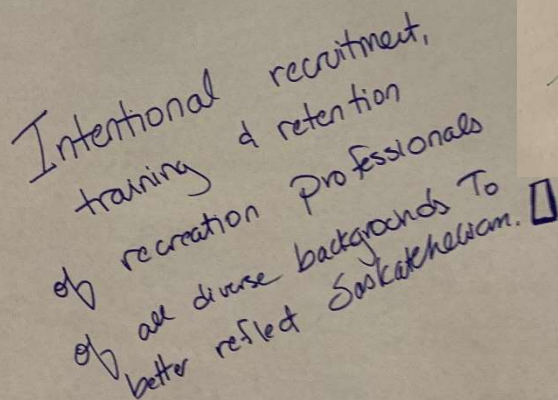 Intentional recruitment,
training & retention
of recreation professionals
of all diverse backgrounds To
better reflect Saskatchewan.